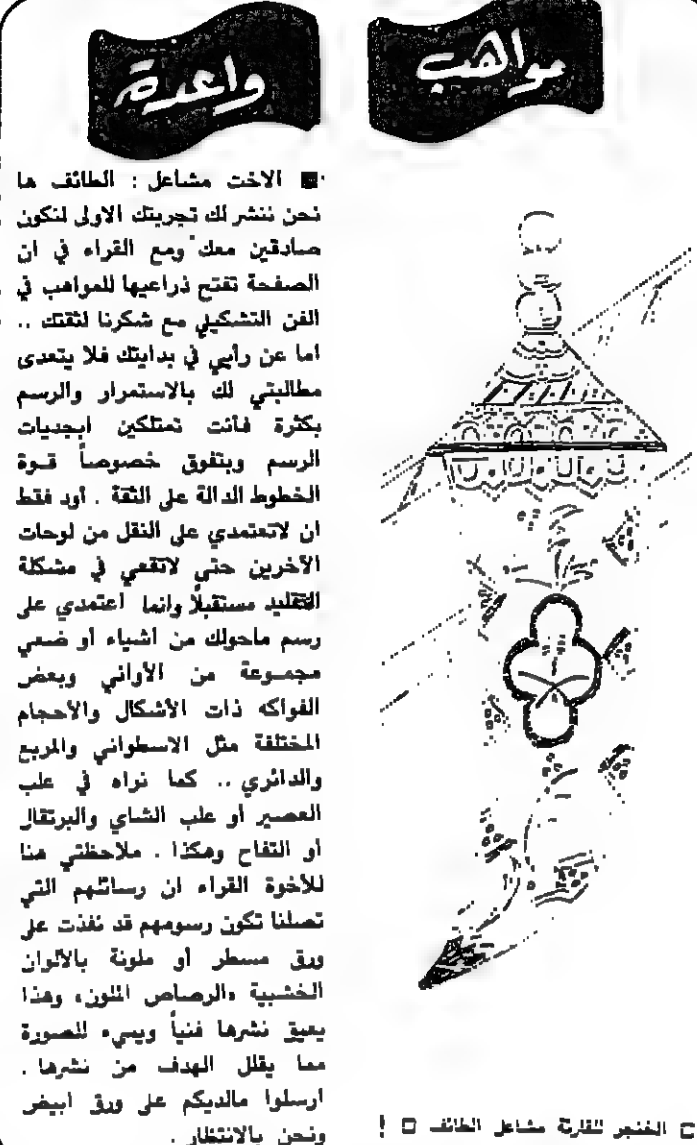 مواهب
واعدة
■ الاخت مشاعل : الطائف ها
نحن ننشر لك تجربتك الاولى لنكون
صادقين معك ومع القراء في ان
الصفحة تفتح ذراعيها للمواهب في
الفن التشكيلي مع شكرنا لثقتك ..
اما عن رأيي في بدايتك فلا يتعدى
مطالبتي لك بالاستمرار والرسم
بكثرة فأنت تمتلكين ابجديات
الرسم وبتفوق خصوصاً قوة
الخطوط الدالة على الثقة . أود فقط
ان لاتعتمدي على النقل من لوحات
الآخرين حتى لاتقعي في مشكلة
التقليد مستقبلاً وانما اعتمدي على
رسم ماحولك من اشياء أو ضعي
مجموعة من الأواني وبعض
الفواكه ذات الأشكال والأحجام
المختلفة مثل الاسطواني والمربع
والدائري .. كما نراه في علب
العصير أو علب الشاي والبرتقال
أو التفاح وهكذا . ملاحظتي هنا
للأخوة القراء ان رسائلهم التي
تصلنا تكون رسومهم قد نفذت على
ورق مسطر أو ملونة بالألوان
الخشبية «الرصاص الملون» وهذا
يعيق نشرها فنياً ويسيء للصورة
مما يقلل الهدف من نشرها .
ارسلوا مالديكم على ورق ابيض
ونحن بالانتظار .
□ الخنجر للقارئة مشاعل الطائف □ !